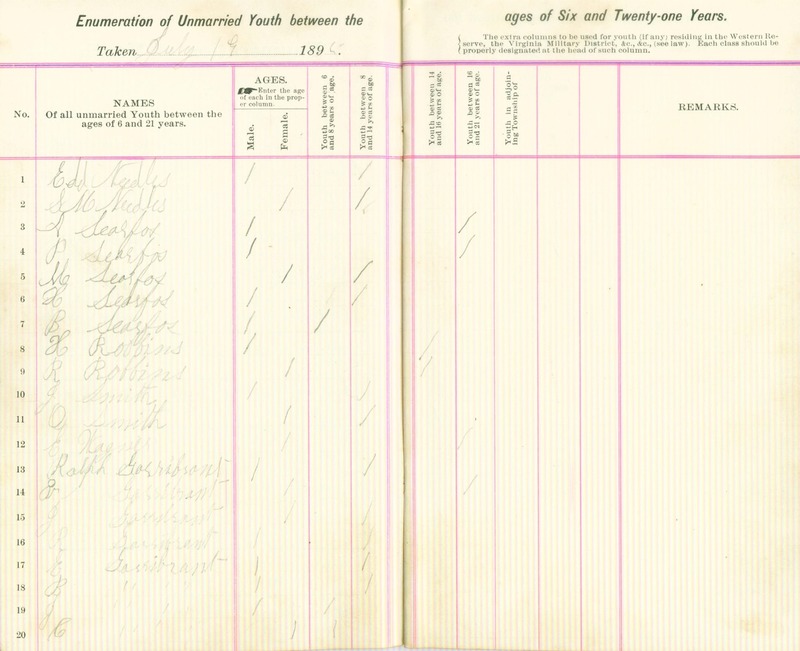 Enumeration of Unmarried Youth between the ages of Six and Twenty-one Years.
Taken July 19 189
The extra columns to be used for youth (if any; residing in the Western Re-
serve, the Virginia Military District, &c., &c., (see law). Each class should be
properly designated at the head of such column.
No.
NAMES
Of all unmarried Youth between the
ages of 6 and 21 years.
AGES.
Enter the age
of each in the prop-
er column.
Male.
Female.
Youth between 6
and 8 years of age.
Youth between 8
and 14 years of age.
Youth between 14
and 16 years of age.
Youth between 16
and 21 years of age.
Youth in adjoin-
ing Township of
REMARKS.
1 Edd Needles / /
2 S M Needles / /
3 A Searfos / /
4 P Searfos / /
5 M Searfos / /
6 H Searfos / /
7 B Searfos / /
8 H Robbins / /
9 R Robbins / /
10 Smith / /
11 O Smith / /
12 E / /
13 Ralph Garribrant / /
14 Garribrant / /
15 J Garribrant / /
16 Garribrant / /
17 E Garribrant / /
18 " / /
19 J " " / /
20 C " " / /